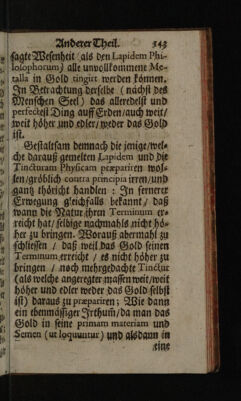 Anderer Theil. 543
sagte Wesenheit (als den Lapidem Phi-
losophorum) alle unvollkommene Me-
talla in Gold tingirt werden können.
In Betrachtung derselbe (nächst des
Menschen Seel) das alleredelst und
perfectest Ding auff Erden/auch weit/
weit höher und edler/weder das Gold
ist.
Gestaltsam demnach die jenige/wel-
che darauß gemelten Lapidem und die
Tincturam Physicam præpariren wol-
len/gröblich contra principia irren/und
gantz thöricht handlen: In fernerer
Erwegung gleichfalls bekannt/ daß
wann die Natur ihren Terminum er-
reicht hat/selbige nachmahls nicht hö-
her zu bringen. Worauß abermahl zu
schliessen / daß weil das Gold seinen
Terminum erreicht / es nicht höher zu
bringen / noch mehrgedachte Tinctur
(als welche angeregter massen weit/weit
höher und edler weder das Gold selbst
ist) daraus zu præpariren; Wie dann
ein ebenmässiger Irthum/da man das
Gold in seine primam materiam und
Semen (ut loquuntur) und alsdann in
eine